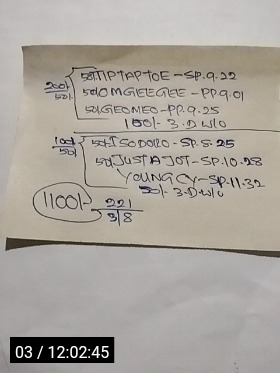 200/- 50/- 50/-TIPTAPTOE-SP.9.22
50/-OMGEEGEE-PP.9.01
50/-GEOMEO-PP.9.25
100/- 3.D W/O
100/- 50/- 50/-ISODORO-SP.5.25
50/-JUSTAJOT-SP.10.28
YOUNG CY-SP.11.32
50/- 3.D W/O
1100/- 221
3/8
03 / 12:02:45